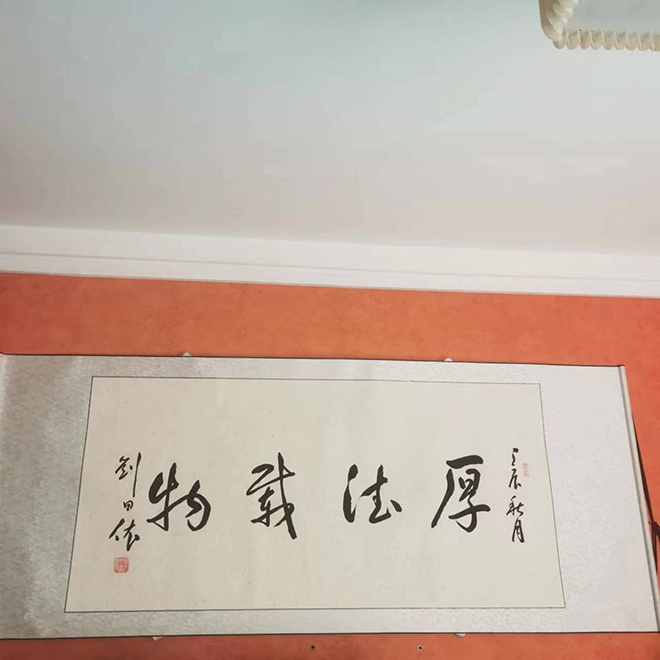 壬辰秋月
厚德载物
刘田依